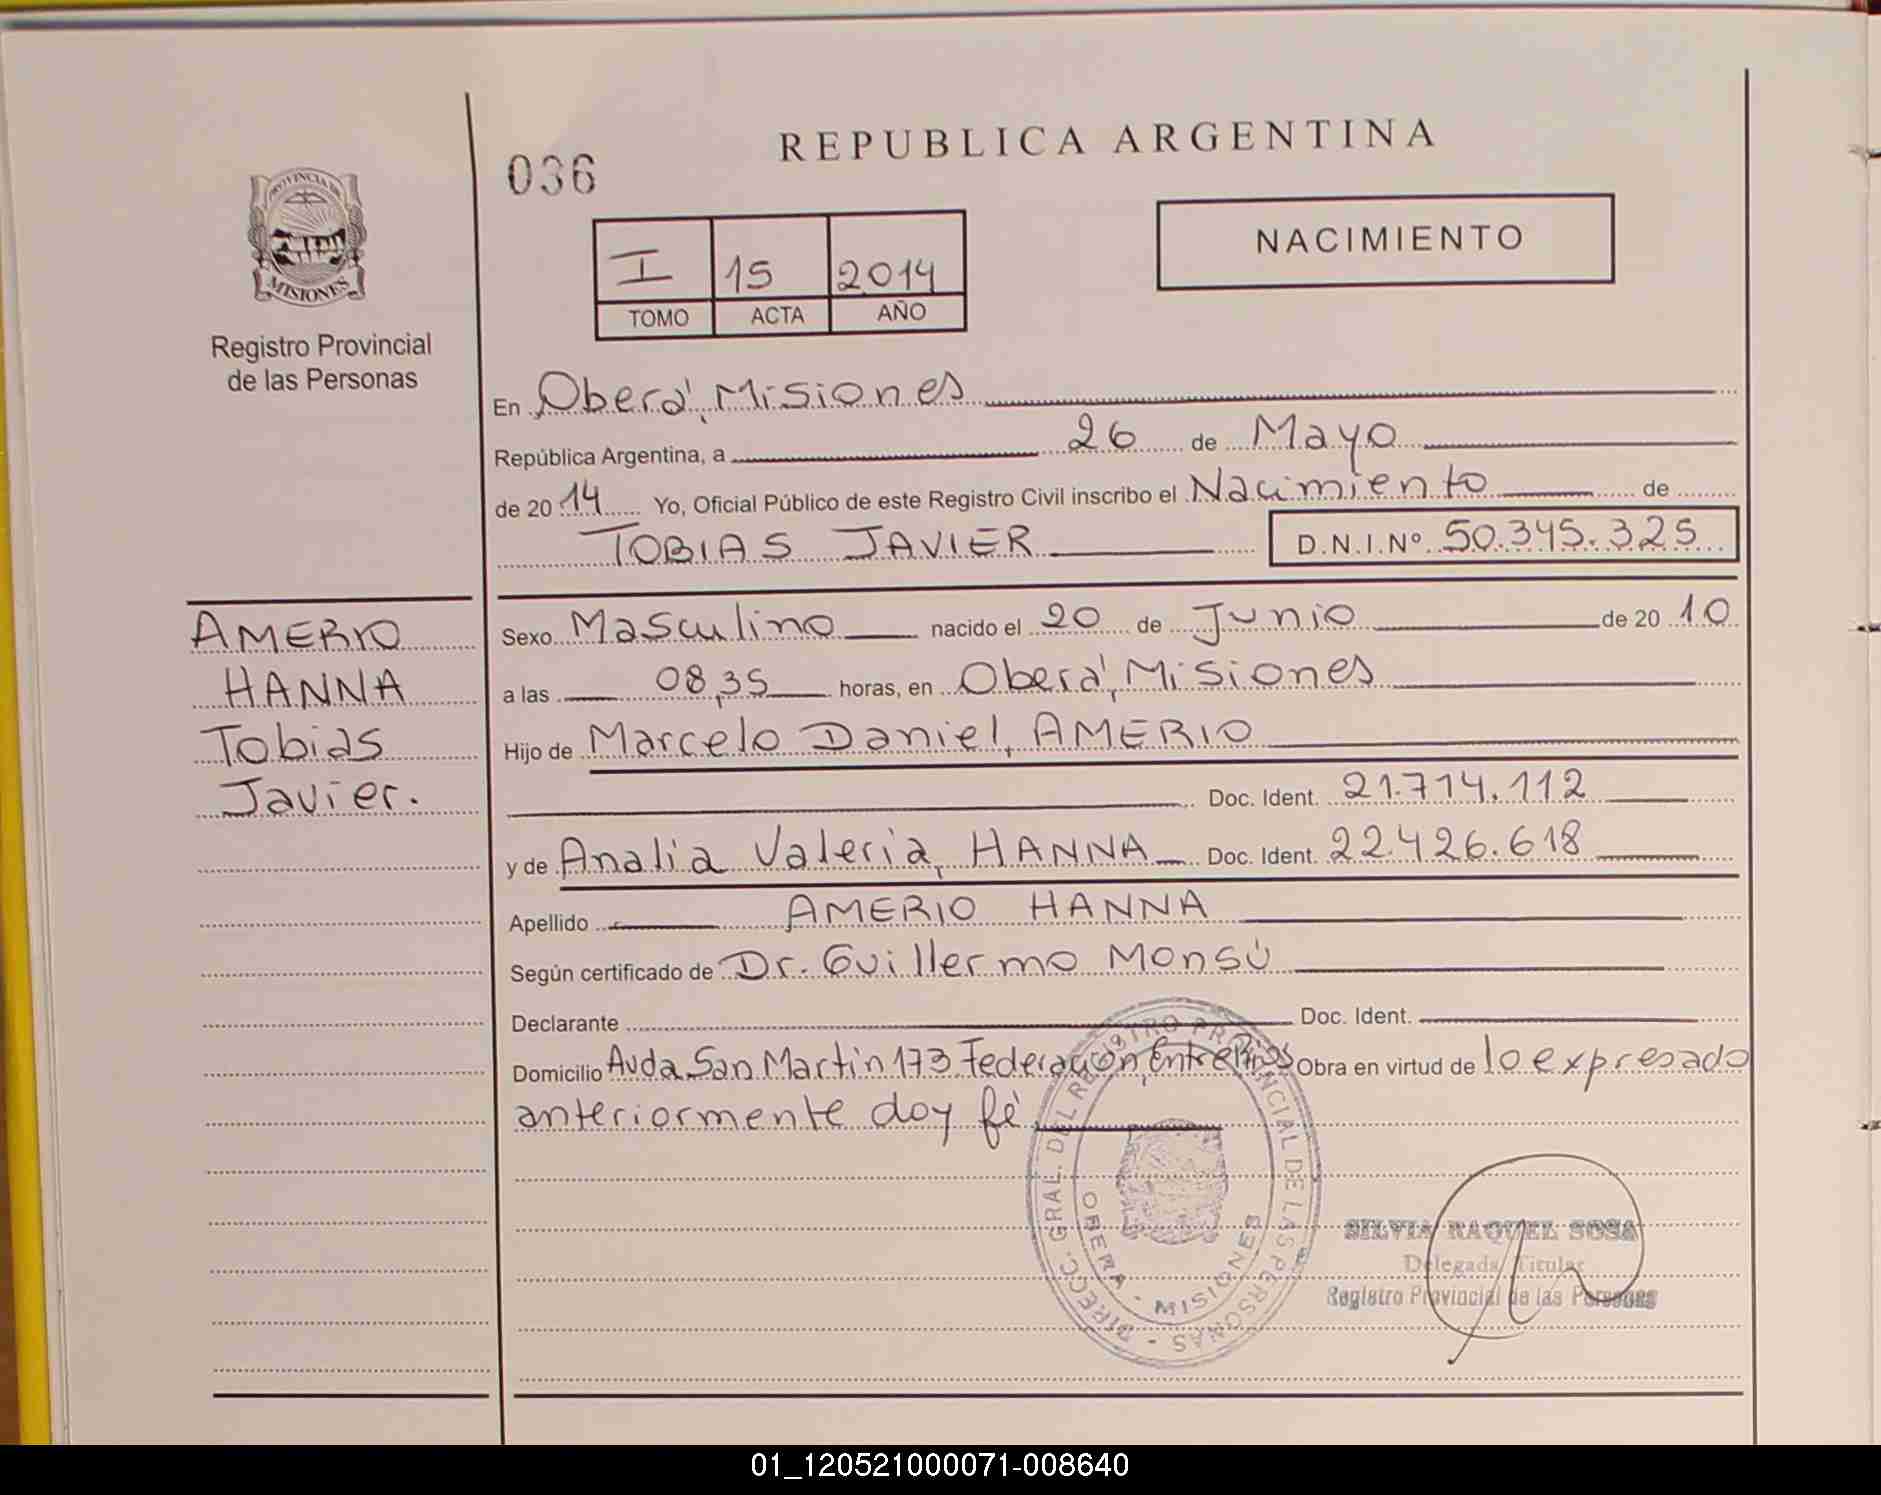 REPUBLICA ARGENTINA
036
PROVINCIA DE
MISIONES
NACIMIENTO
I 15 2014
TOMO ACTA AÑO
Registro Provincial
de las Personas
En Oberá, Misiones
República Argentina, a 26 de Mayo
de 2014 Yo, Oficial Público de este Registro Civil inscribo el Nacimiento de
TOBIAS JAVIER D.N.I.Nº 50.345.325
AMERIO
HANNA
Tobias
Javier.
Sexo Masculino nacido el 20 de Junio de 2010
a las 08,35 horas, en Oberá, Misiones
Hijo de Marcelo Daniel, AMERIO
Doc. Ident. 21.714.112
y de Analia Valeria, HANNA Doc. Ident. 22.426.618
Apellido AMERIO HANNA
Según certificado de Dr. Guillermo Monsú
Declarante Doc. Ident.
Domicilio Avda San Martin 173 Federación, Entre Rios Obra en virtud de lo expresado
anteriormente doy fé
DIRECC. GRAL. DEL REGISTRO PROVINCIAL DE LAS PERSONAS -
OBERA - MISIONES
SILVIA RAQUEL SOSA
Delegada Titular
Registro Provincial de las Personas
01_120521000071-008640